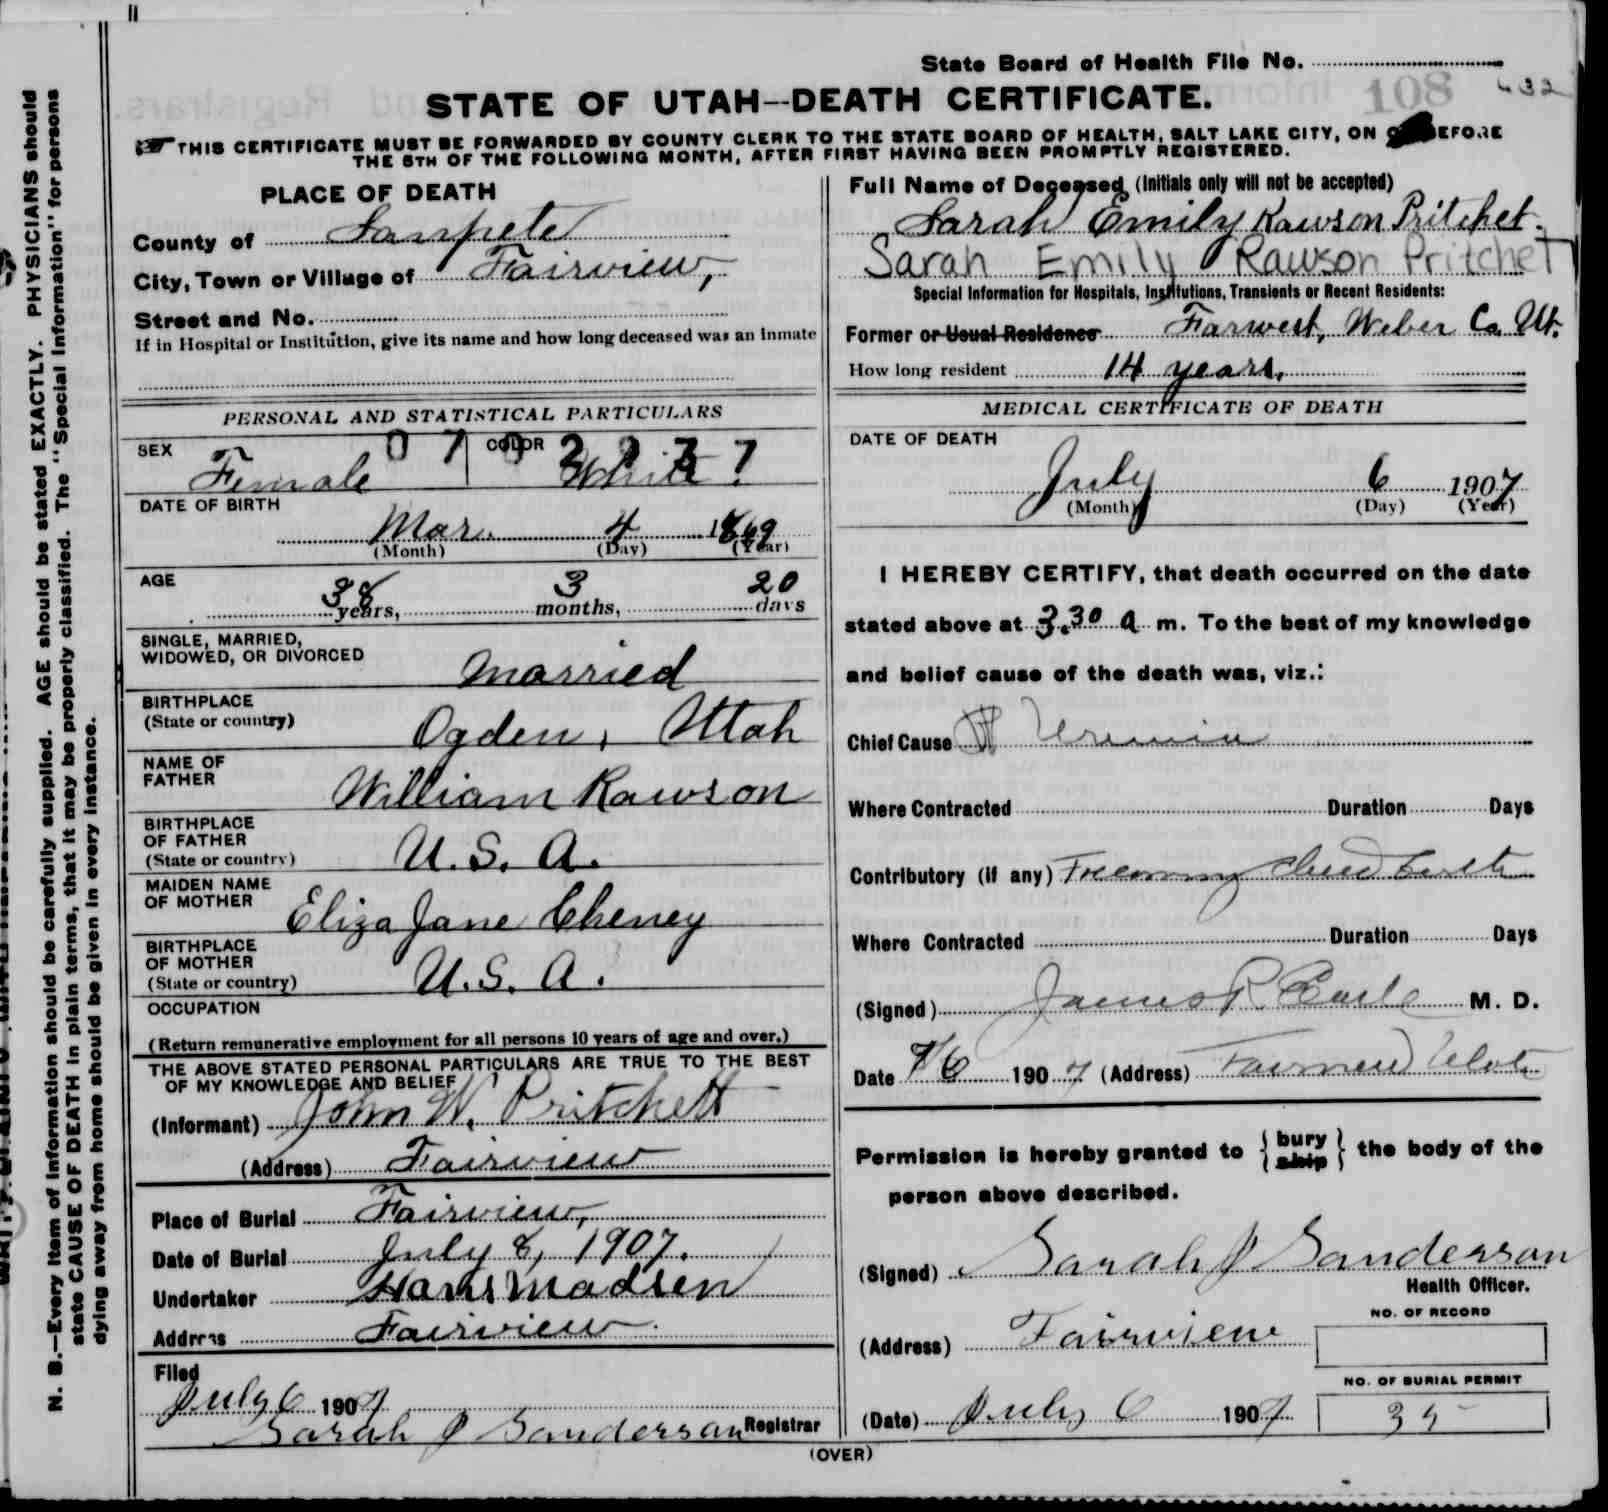 State Board of Health File No.
108
432
STATE OF UTAH--DEATH CERTIFICATE.
THIS CERTIFICATE MUST BE FORWARDED BY COUNTY CLERK TO THE STATE BOARD OF HEALTH, SALT LAKE CITY, ON BEFORE
THE 5TH OF THE FOLLOWING MONTH, AFTER FIRST HAVING BEEN PROMPTLY REGISTERED.
N. B.—Every item of information should be carefully supplied. AGE should be stated EXACTLY. PHYSICIANS should
state CAUSE OF DEATH in plain terms, that it may be properly classified. The "Special Information" for persons
dying away from home should be given in every instance.
PLACE OF DEATH
County of Sanpete
City, Town or Village of Fairview,
Street and No.
If in Hospital or Institution, give its name and how long deceased was an inmate
PERSONAL AND STATISTICAL PARTICULARS
SEX Female COLOR White
DATE OF BIRTH
Mar. 4 1869
(Month) (Day) (Year)
AGE
38 years, 3 months, 20 days
SINGLE, MARRIED,
WIDOWED, OR DIVORCED married
BIRTHPLACE
(State or country) Ogden, Utah
NAME OF
FATHER William Rawson
BIRTHPLACE
OF FATHER
(State or country) U. S. A.
MAIDEN NAME
OF MOTHER Eliza Jane Cheney
BIRTHPLACE
OF MOTHER
(State or country) U. S. A.
OCCUPATION
(Return remunerative employment for all persons 10 years of age and over.)
THE ABOVE STATED PERSONAL PARTICULARS ARE TRUE TO THE BEST
OF MY KNOWLEDGE AND BELIEF
(Informant) John W. Pritchett
(Address) Fairview
Place of Burial Fairview,
Date of Burial July 8, 1907.
Undertaker Hans Madsen
Address Fairview.
Filed
July 6 1907
Sarah J Sanderson Registrar
Full Name of Deceased (Initials only will not be accepted)
Sarah Emily Rawson Pritchet.
Sarah Emily Rawson Pritchet
Special Information for Hospitals, Institutions, Transients or Recent Residents:
Former or Usual Residence Farwest, Weber Co. Ut.
How long resident 14 years.
MEDICAL CERTIFICATE OF DEATH
DATE OF DEATH
July 6 1907
(Month) (Day) (Year)
I HEREBY CERTIFY, that death occurred on the date
stated above at 3.30 a m. To the best of my knowledge
and belief cause of the death was, viz.:
Chief Cause Uremia
Where Contracted Duration Days
Contributory (if any)
Where Contracted Duration Days
(Signed) James R Earle M. D.
Date 7/6 1907 (Address) Fairview Utah
Permission is hereby granted to { bury ship } the body of the
person above described.
(Signed) Sarah J Sanderson
Health Officer.
NO. OF RECORD
(Address) Fairview
NO. OF BURIAL PERMIT
(Date) July 6 1907 35
(OVER)